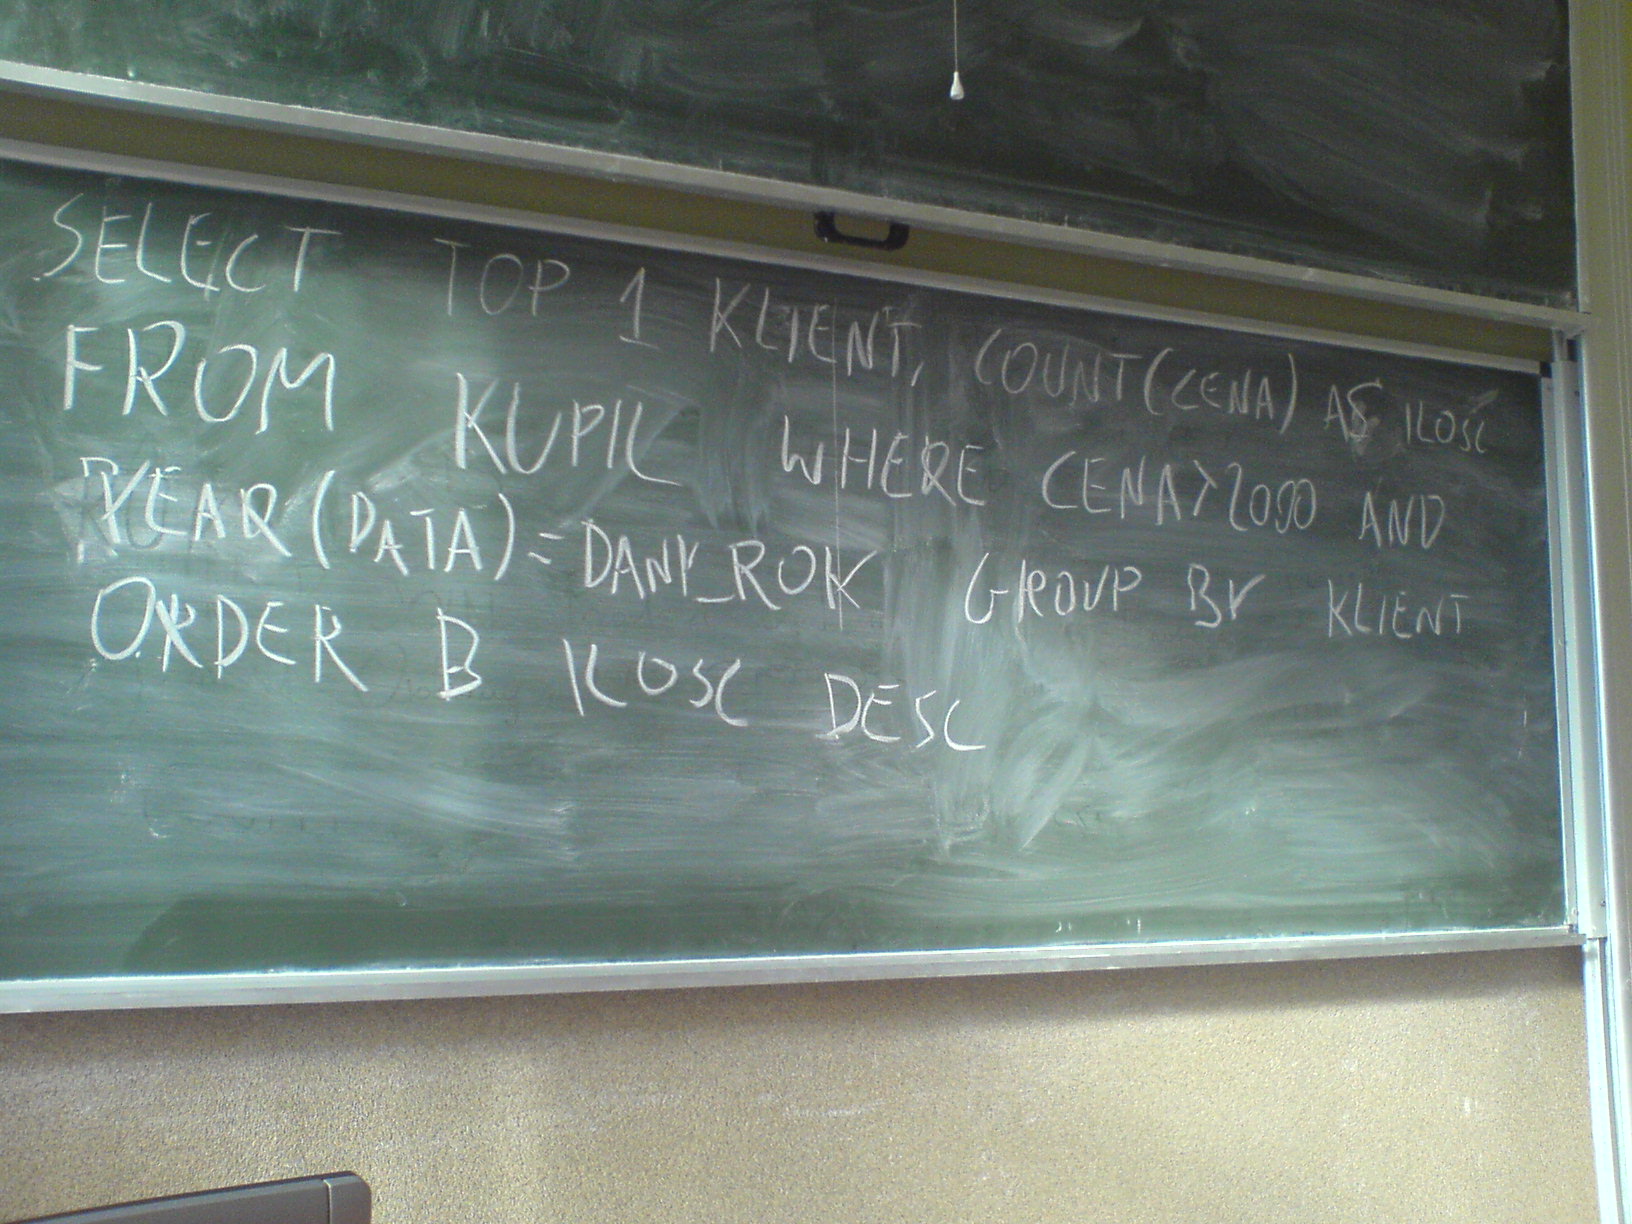 SELECT TOP 1 KLIENT, COUNT(CENA) AS ILOSC
FROM KUPIL WHERE CENA>2000 AND
YEAR(DATA)=DANY_ROK GROUP BY KLIENT
ORDER B ILOSC DESC